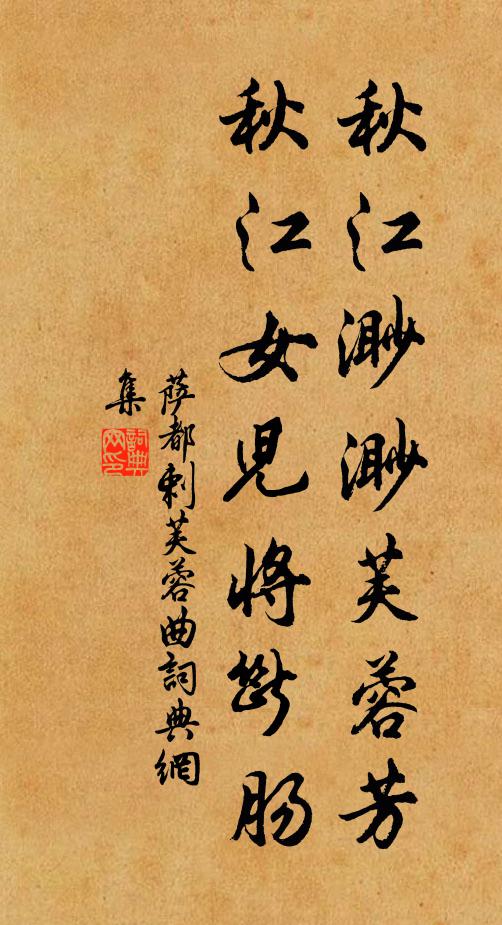 秋江渺渺芙蓉芳
秋江女兒將斷腸
薩都剌芙蓉曲詞典網
集
詞典
网印